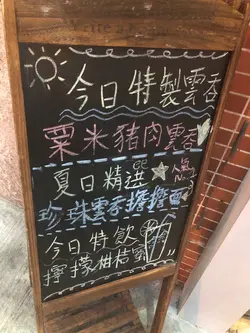 今日特製雲吞
粟米豬肉雲吞
夏日精選
珍珠雲吞擔擔面
今日特飲
檸檬柑桔蜜